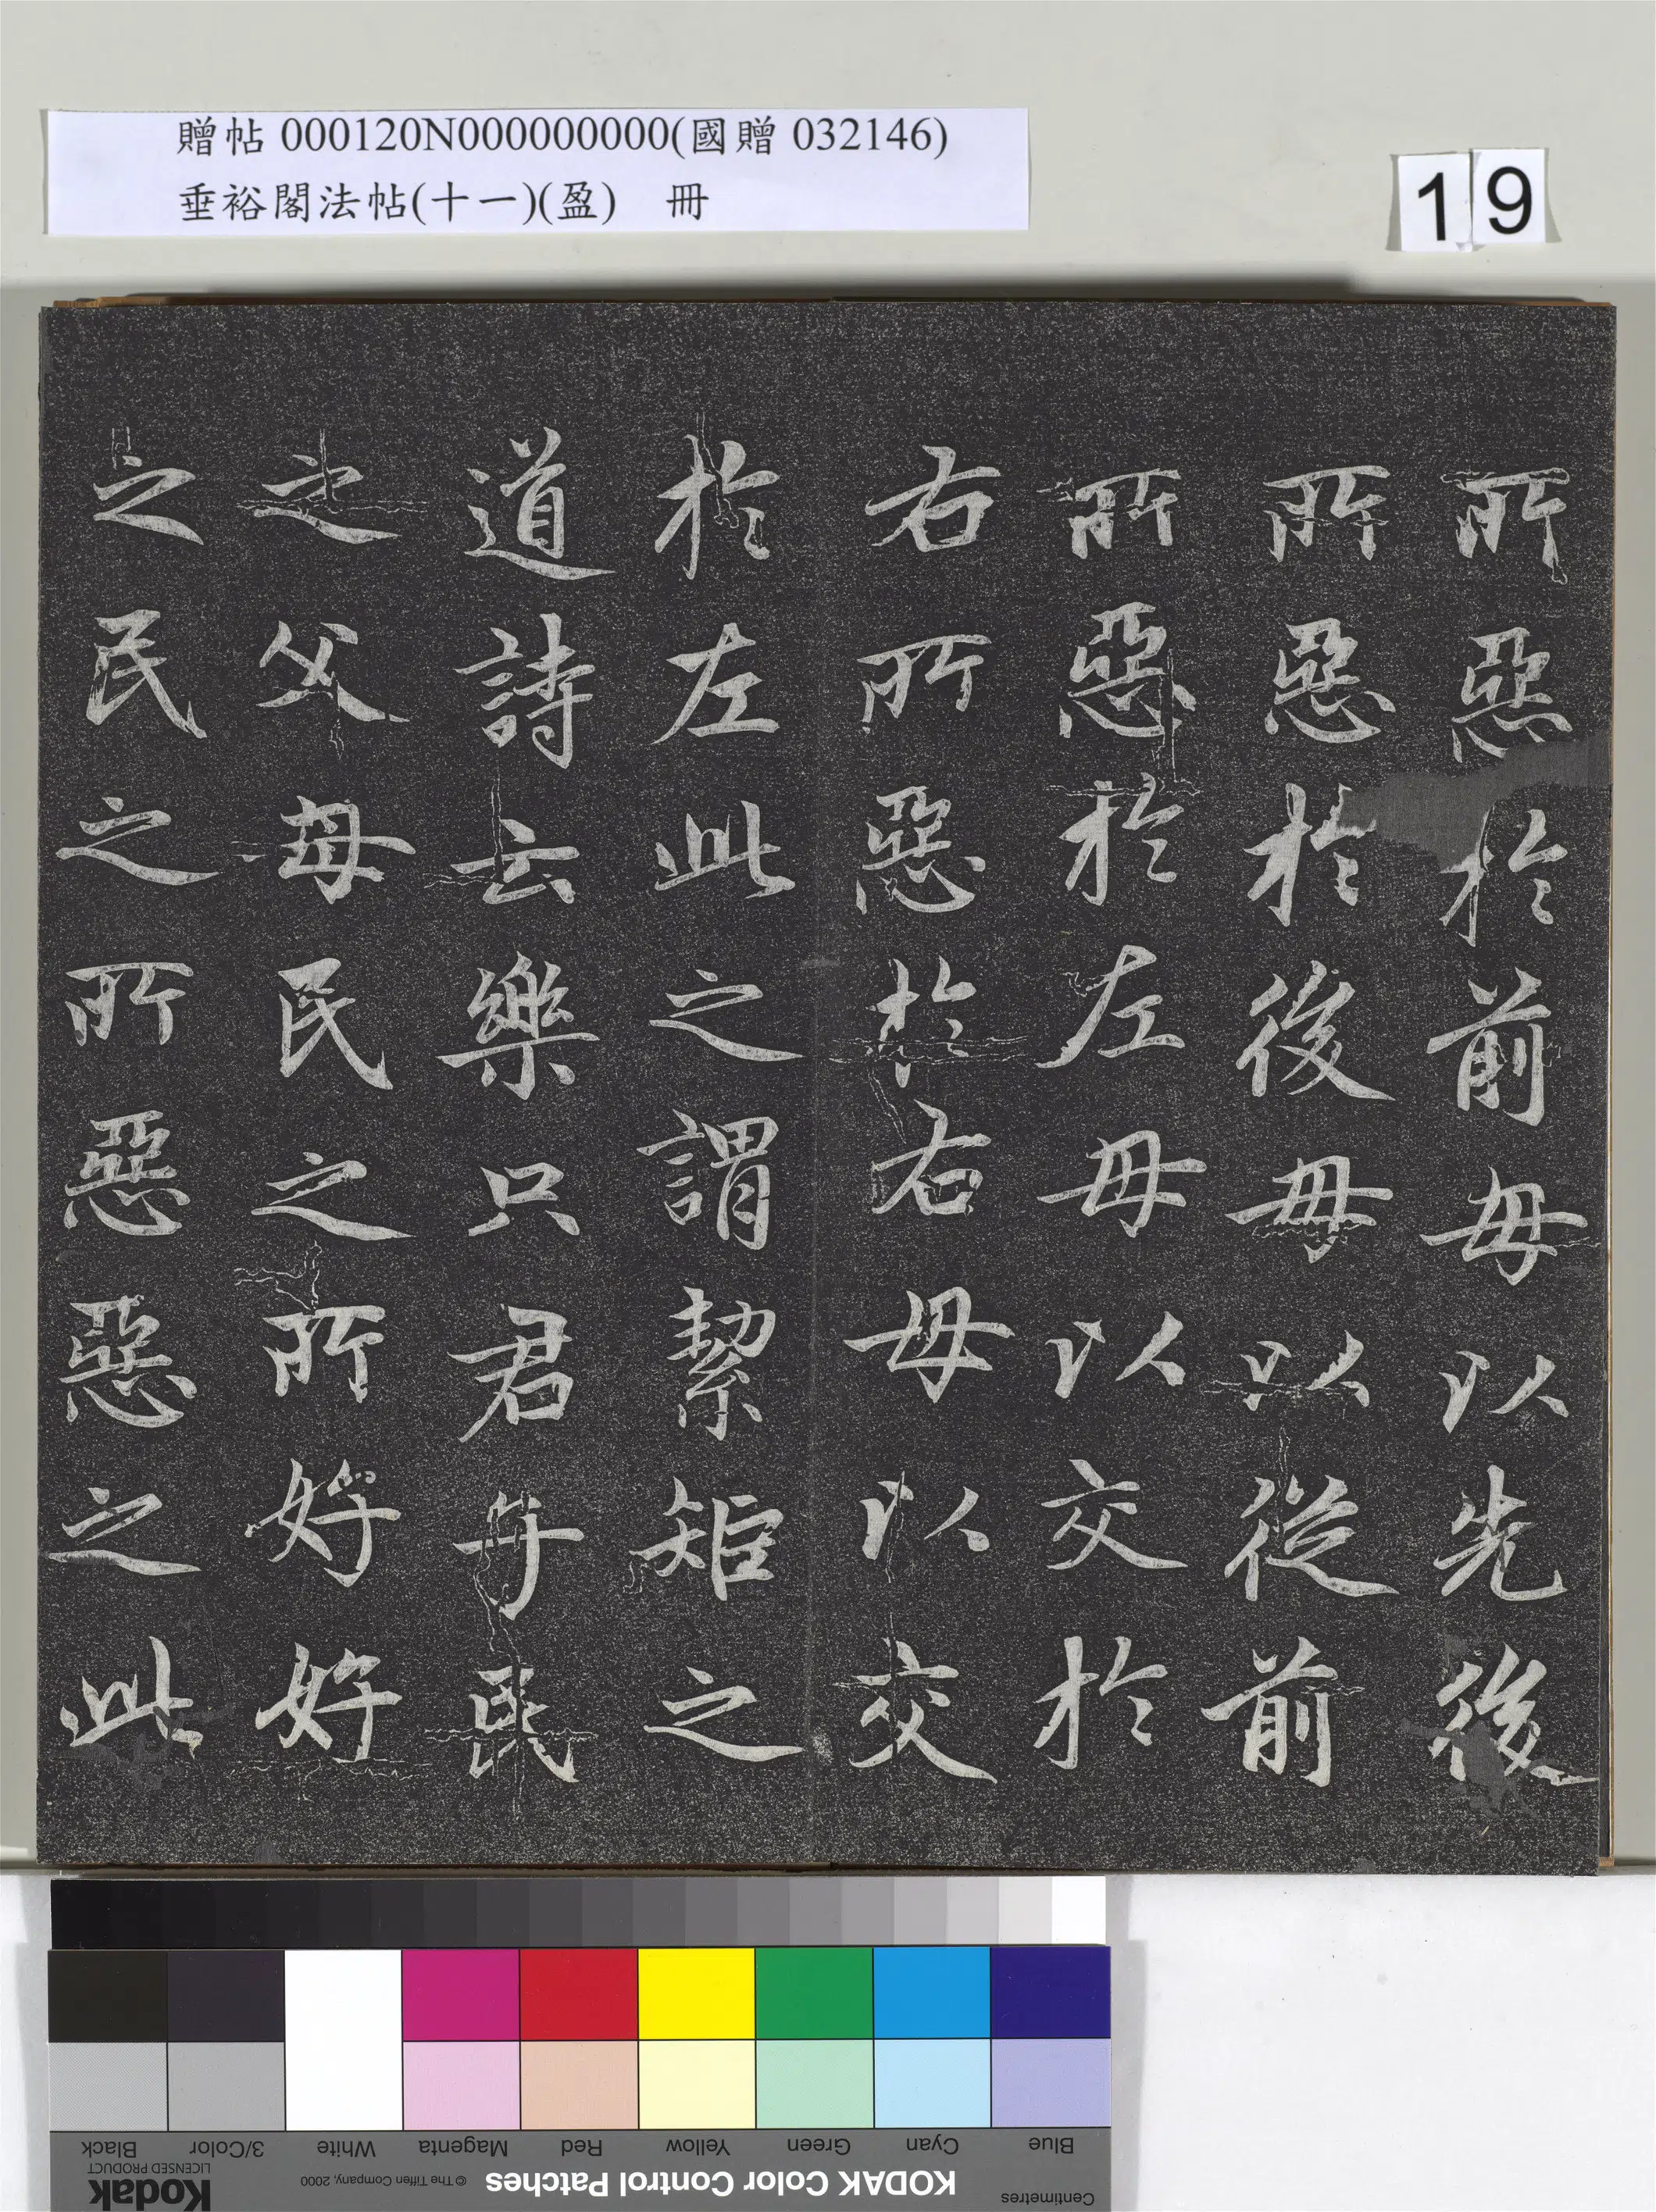 贈帖 000120N000000000(國贈 032146)
垂裕閣法帖(十一)(盈) 冊
19
所惡於前毋以先後
所惡於後毋以從前
所惡於左毋以交於
右所惡於右毋以交
於左此之謂絜矩之
道詩云樂只君子民
之父母民之所好好
之民之所惡惡之此
Blue
Cyan
Green
Yellow
Red
Magenta
White
3/Color
Black
Centimetres
KODAK Color Control Patches
© The Tiffen Company, 2000
LICENSED PRODUCT
Kodak